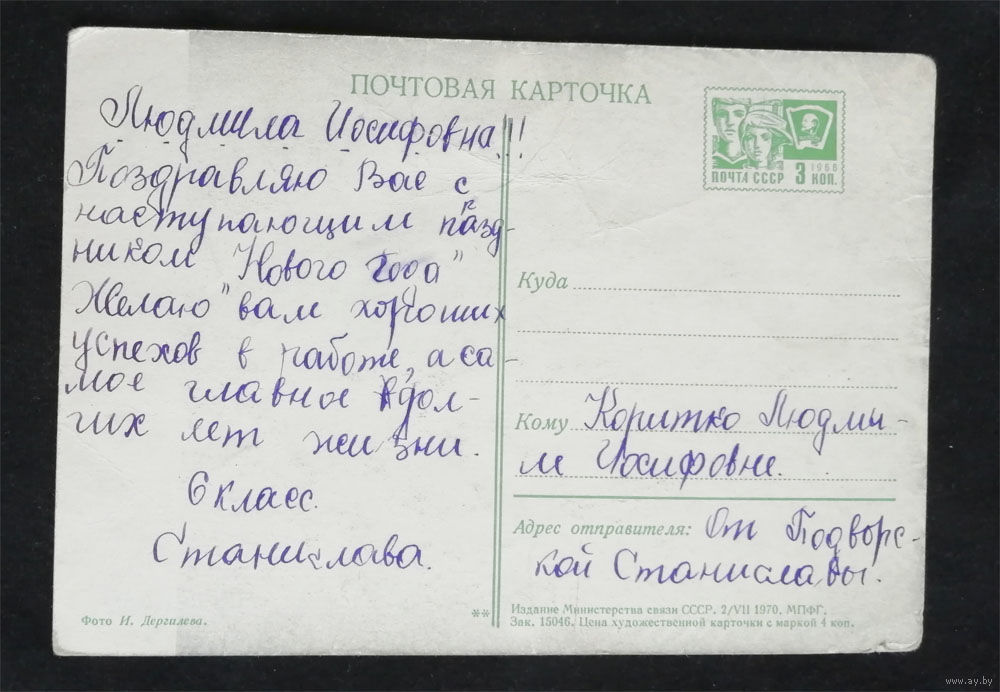 ПОЧТОВАЯ КАРТОЧКА
Людмила Иосифовна!!!
Поздравляю Вас с
наступающим празд-
ником "Нового года"
Желаю вам хороших
успехов в работе, а са-
мое главное долгих
гих лет жизни.
6 класс.
Станислава.
Фото И. Дергилева.
**
ПОЧТА СССР 3 КОП.
1966
Куда
Кому Коритко Людмы-
м Иосифовне.
Адрес отправителя: От Подворс-
кой Станиславы.
Издание Министерства связи СССР. 2/VII 1970. МПФГ.
Зак. 15046. Цена художественной карточки с маркой 4 коп.
www.ay.by